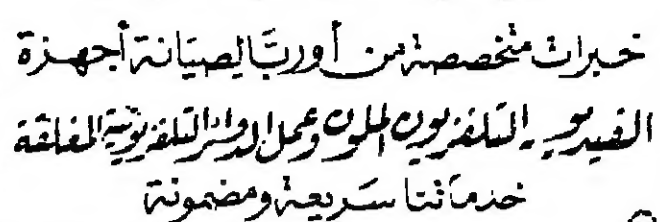 خبرات متخصصة من أوربا لصيانة أجهزة
الفيديو - التلفزيون الملون وعمل الدوائر التلفزيونية المغلقة
خدماتنا سريعة ومضمونة